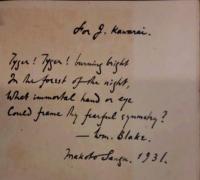 For J. Kawarai.
Tyger! Tyger! burning bright
In the forest of the night,
What immortal hand or eye
Could frame thy fearful symmetry?
— Wm. Blake.
Makoto Sangu. 1931.